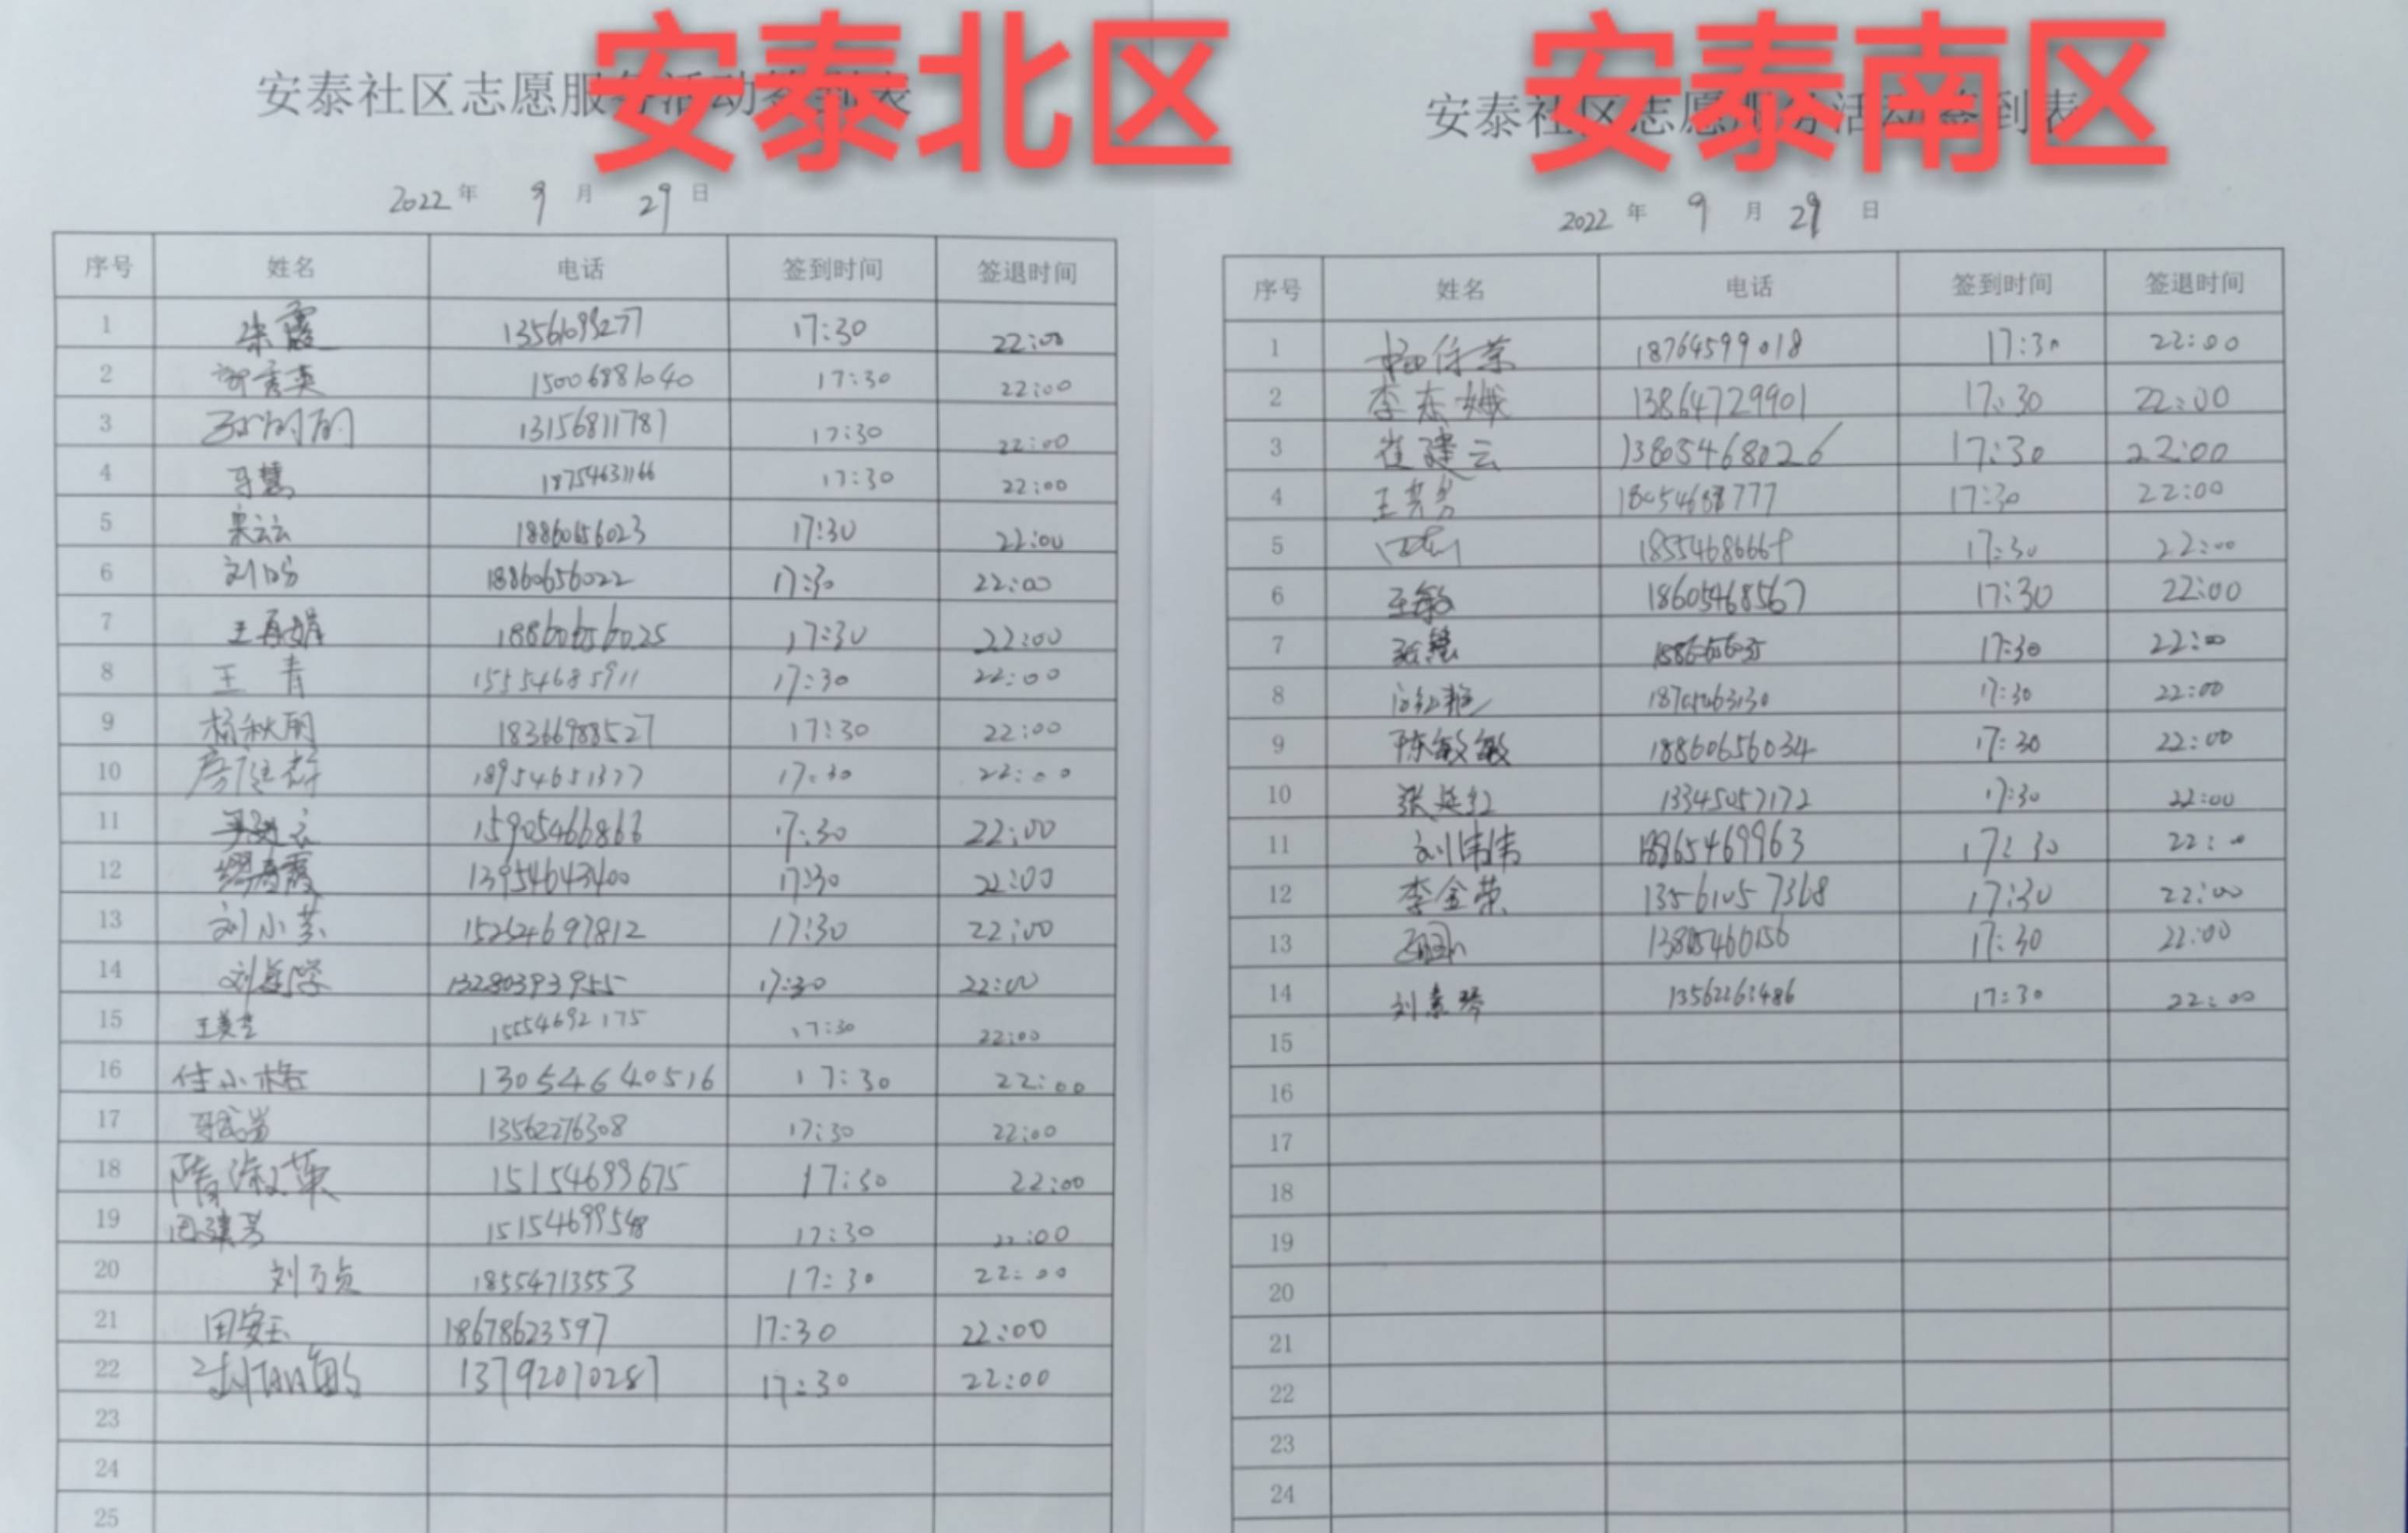 安泰北区
安泰社区志愿服务活动签到表
2022 年 9 月 29 日
序号 姓名 电话 签到时间 签退时间
1 朱霞 17:30 22:00
2 15006881040 17:30 22:00
3 13156811781 17:30 22:00
4 马慧 18754631166 17:30 22:00
5 宋云云 18860656023 17:30 22:00
6 18860656022 17:30 22:00
7 王再娟 18860656025 17:30 22:00
8 王青 15554685911 17:30 22:00
9 杨秋丽 18366988527 17:30 22:00
10 18954651377 17:30 22:00
11 17:30 22:00
12 13954643400 17:30 22:00
13 刘小芸 15262697812 17:30 22:00
14 13280393955 17:30 22:00
15 王美兰 15554692175 17:30 22:00
16 任小格 13054640516 17:30 22:00
17 13562276308 17:30 22:00
18 隋淑英 15154699675 17:30 22:00
19 田建芳 15154699548 17:30 22:00
20 刘乃贞 18554713553 17:30 22:00
21 田安玉 18678623597 17:30 22:00
22 13792070287 17:30 22:00
23
24
25
安泰南区
安泰社区志愿服务活动签到表
2022 年 9 月 29 日
序号 姓名 电话 签到时间 签退时间
1 18764599018 17:30 22:00
2 李东娥 13864729901 17:30 22:00
3 崔建云 13805468026 17:30 22:00
4 17:30 22:00
5 17:30 22:00
6 王敏 18605468567 17:30 22:00
7 17:30 22:00
8 17:30 22:00
9 陈敏敏 18860656034 17:30 22:00
10 张延红 13345057172 17:30 22:00
11 刘伟伟 18865469963 17:30 22:00
12 李金荣 13561057368 17:30 22:00
13 17:30 22:00
14 刘素琴 13562263486 17:30 22:00
15
16
17
18
19
20
21
22
23
24